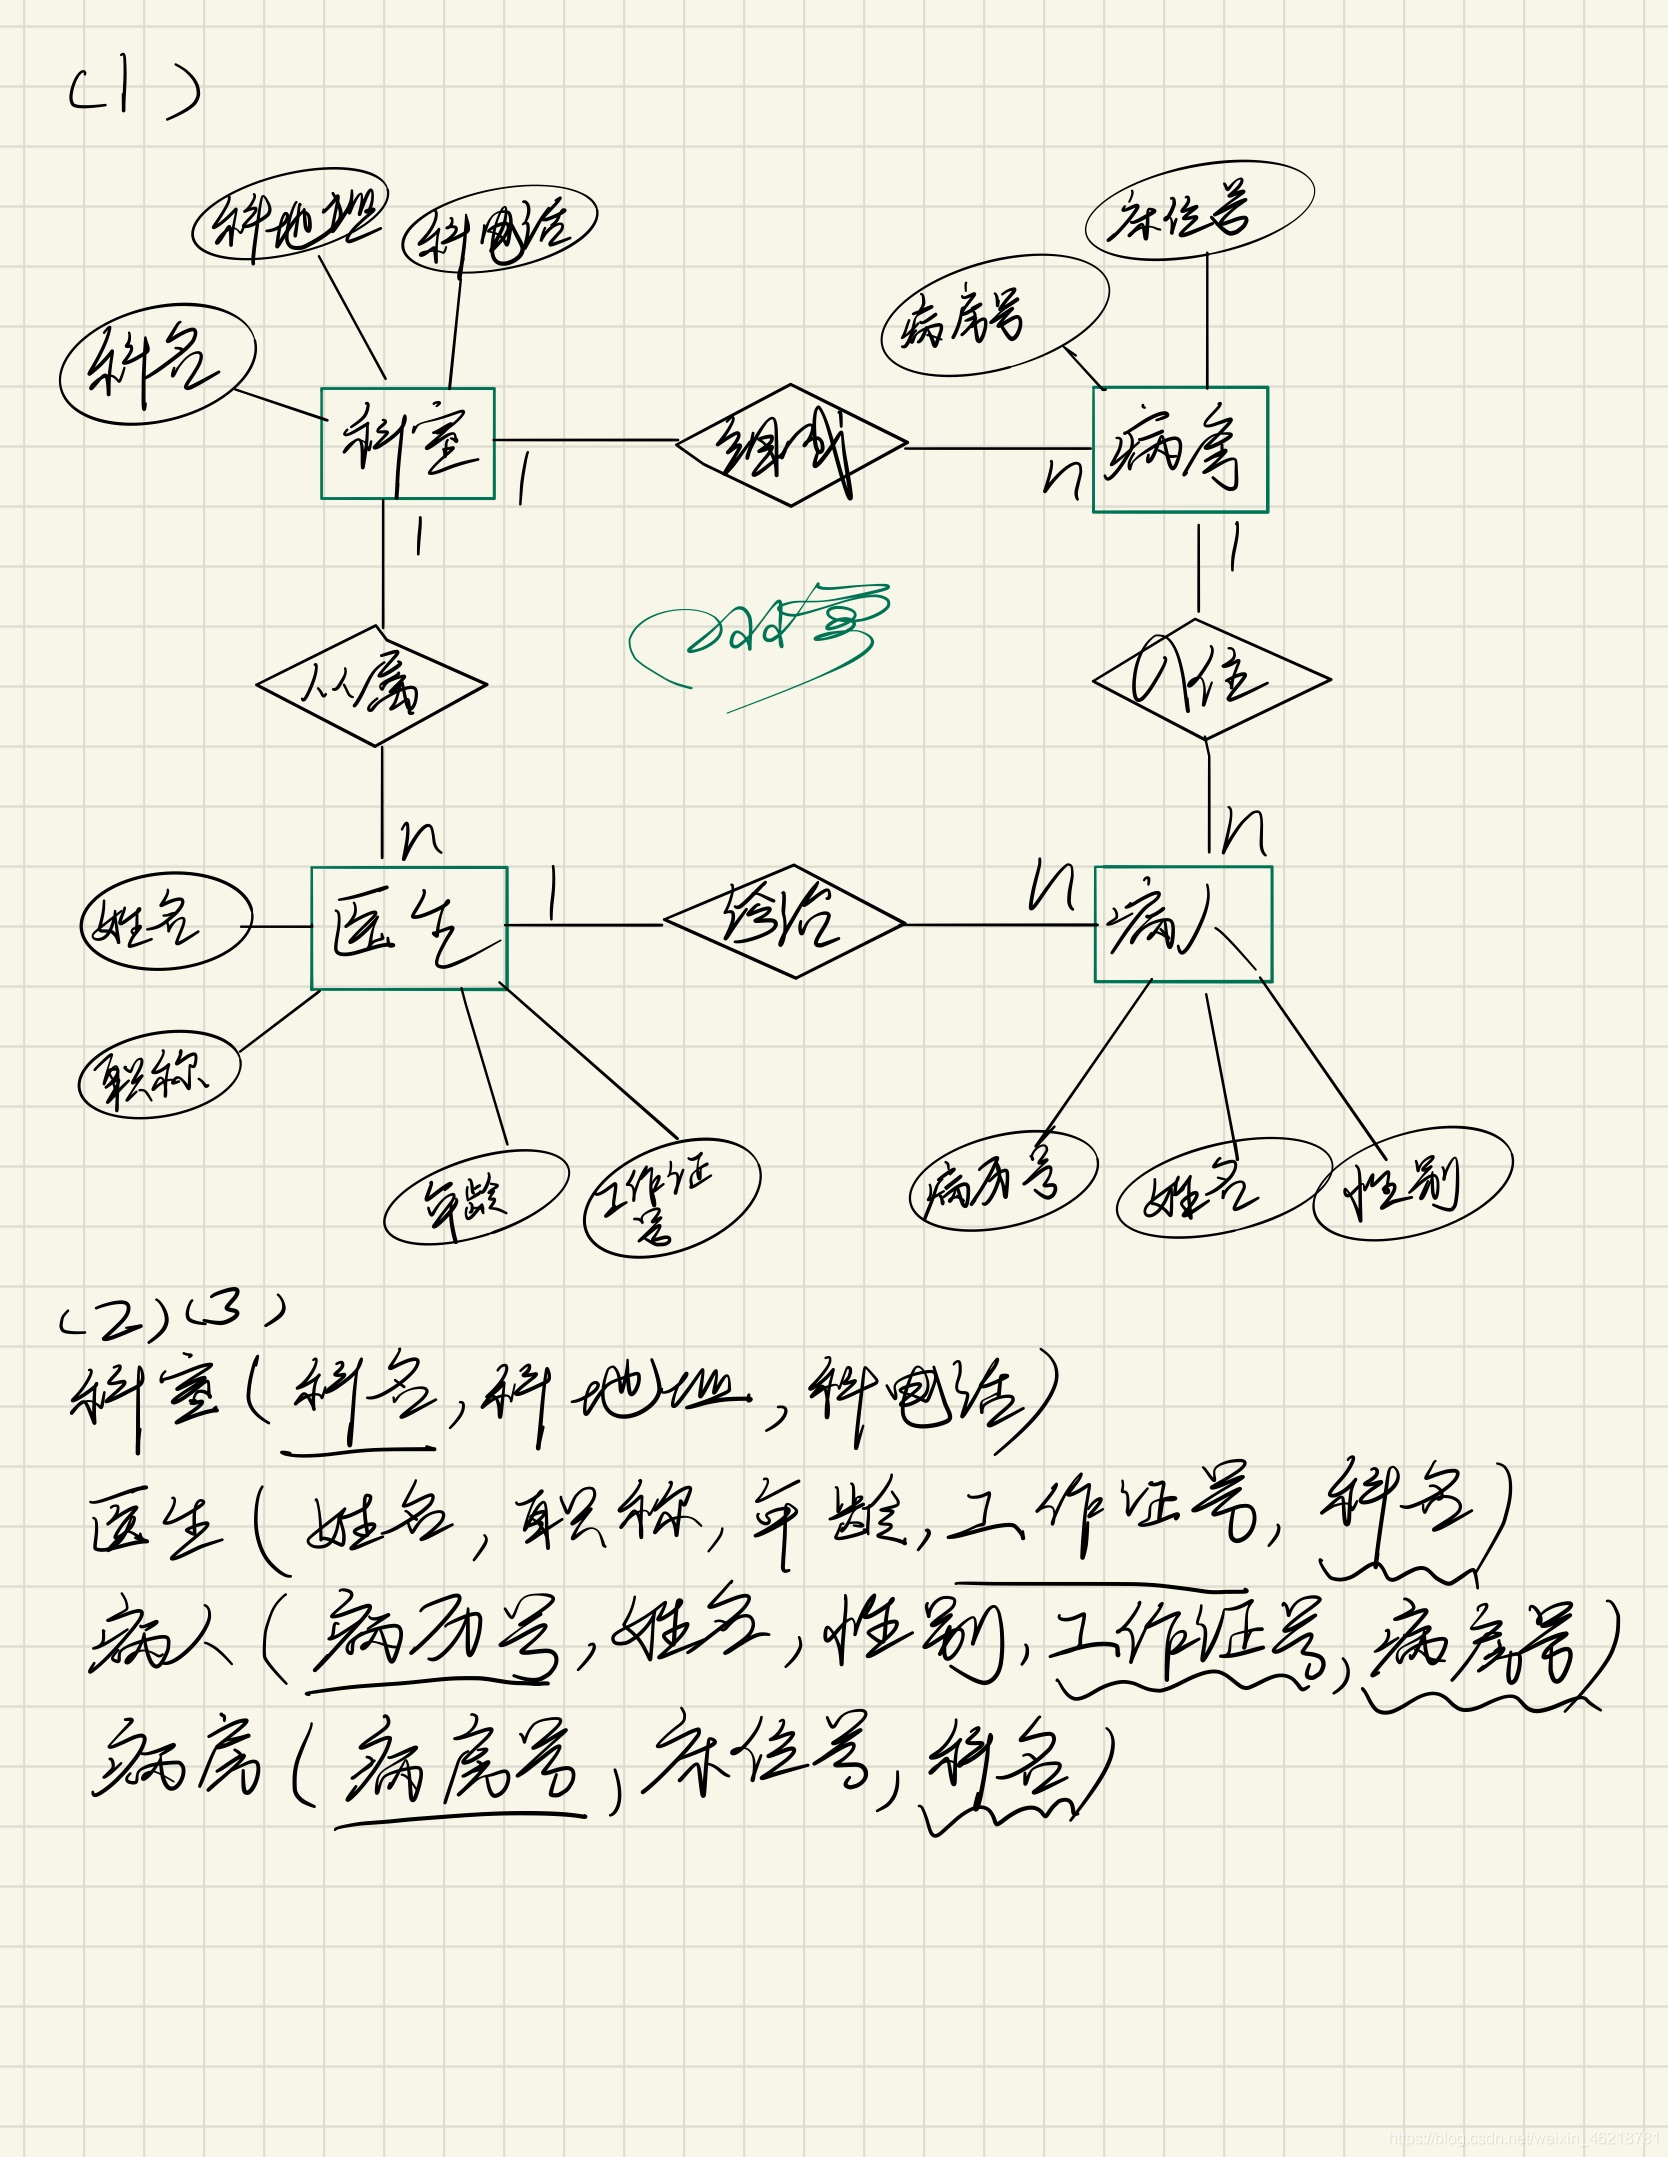 (1)
科地址 科电话 床位号
病房号
科名
科室 1 组成 n 病房
1 1
从属 入住
n n
姓名 医生 1 诊治 n 病人
职称
年龄 工作证号 病历号 姓名 性别
(2)(3)
科室(科名,科地址,科电话)
医生(姓名,职称,年龄,工作证号,科名)
病人(病历号,姓名,性别,工作证号,病房号)
病房(病房号,床位号,科名)
https://blog.csdn.net/weixin_46218781